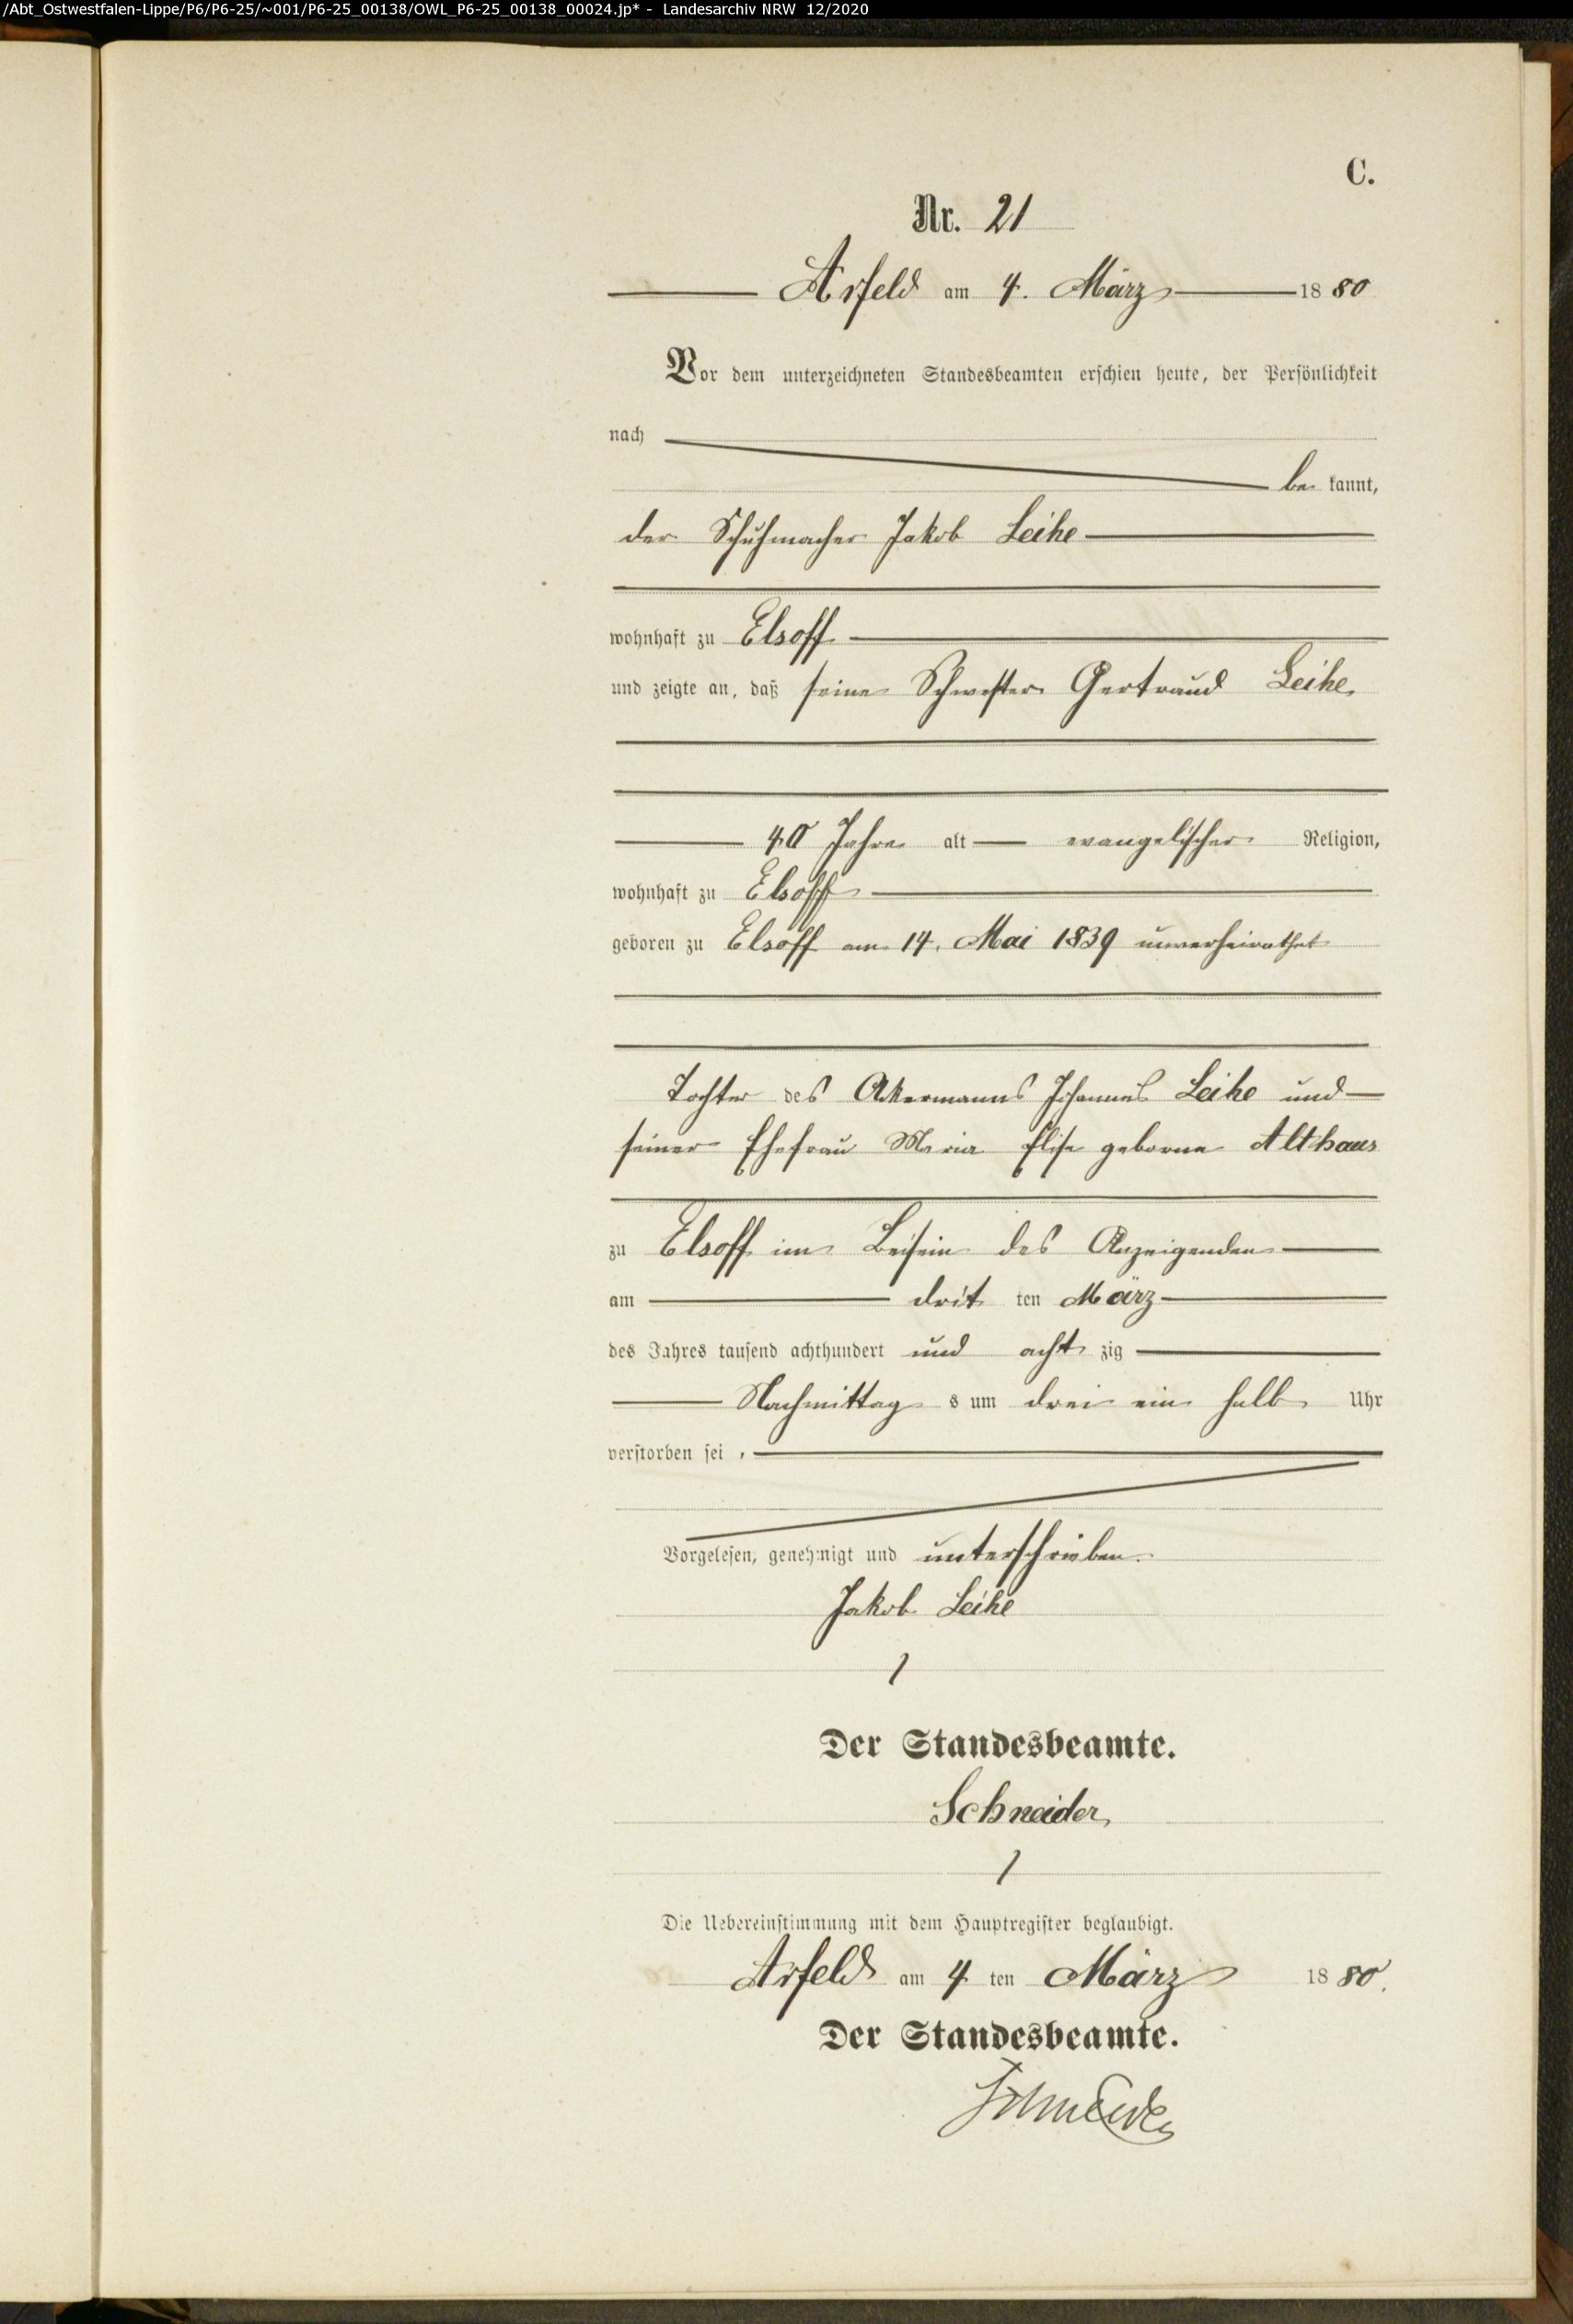 /Abt_Ostwestfalen-Lippe/P6/P6-25/~001/P6-25_00138/OWL_P6-25_00138_00024.jp* - Landesarchiv NRW 12/2020
C.
Nr. 21
Arfeld am 4. März 1880
Vor dem unterzeichneten Standesbeamten erschien heute, der Persönlichkeit
nach
be kannt,
der Schuhmacher Jakob Leihe
wohnhaft zu Elsoff
und zeigte an, daß seine Schwester Gertraud Leihe
40 Jahre alt evangelischer Religion,
wohnhaft zu Elsoff
geboren zu Elsoff am 14. Mai 1839 unverheirathet
Tochter des Ackermanns Johannes Leihe und
seiner Ehefrau Maria Elise geborne Althaus
zu Elsoff im Beisein des Anzeigenden
am drit ten März
des Jahres tausend achthundert und acht zig
Nachmittag s um drei ein halb Uhr
verstorben sei.
Vorgelesen, genehmigt und unterschrieben.
Jakob Leihe
Der Standesbeamte.
Schneider
Die Uebereinstimmung mit dem Hauptregister beglaubigt.
Arfeld am 4 ten März 1880.
Der Standesbeamte.
Schneider